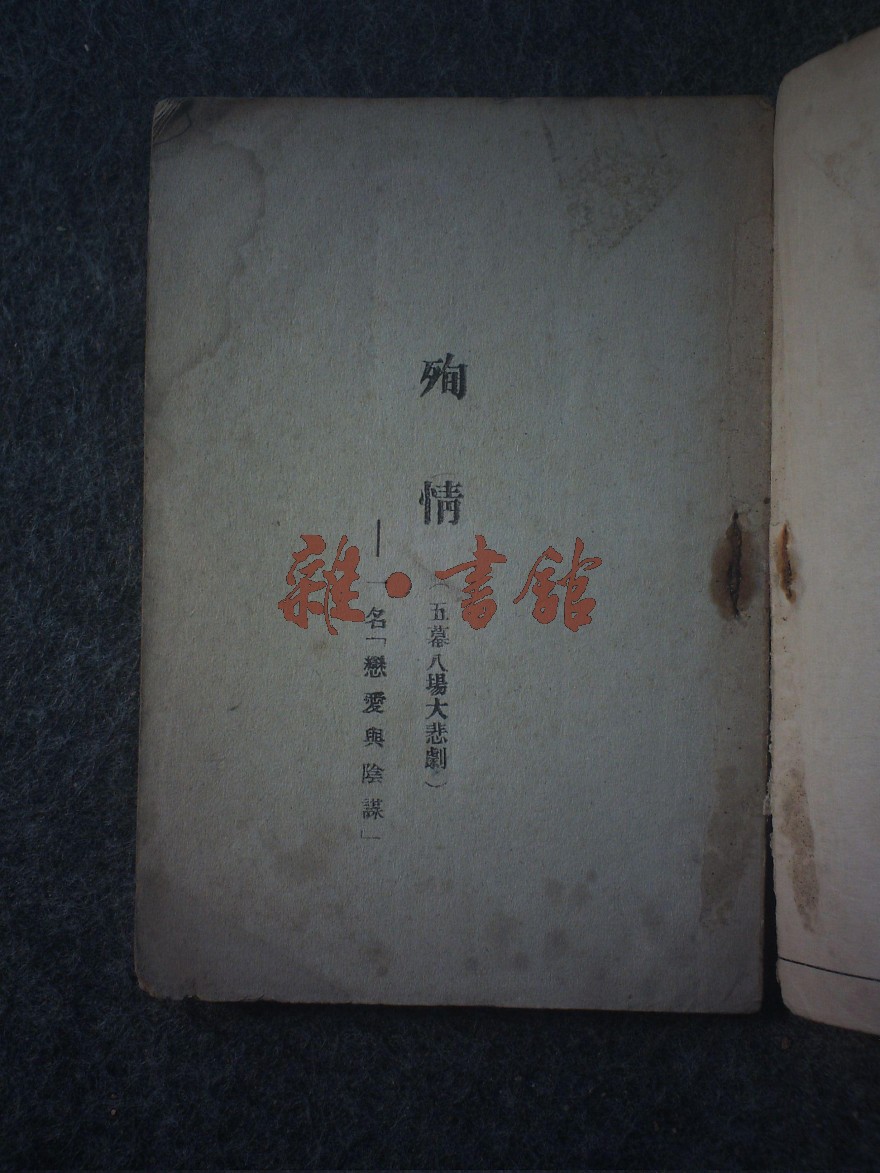 殉情
（五幕八場大悲劇）
—一名「戀愛與陰謀」
雜·書館